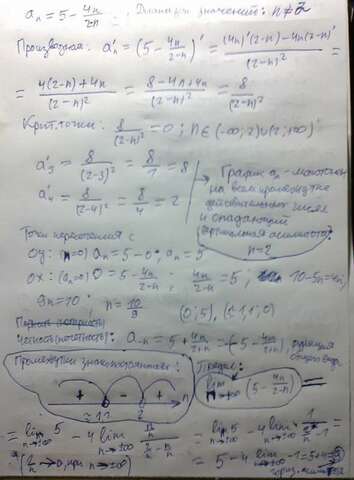 aₙ = 5 - 4n/(2-n) ; значений: n ≠ 2
Производная: a'ₙ = (5 - 4n/(2-n))' = ((4n)'(2-n) - 4n(2-n)')/(2-n)² =
= (4(2-n)+4n)/(2-n)² = (8-4n+4n)/(2-n)² = 8/(2-n)²
Крит. точки: 8/(2-n)² = 0 ; n∈(-∞;2)∪(2;+∞)
a'₃ = 8/(2-3)² = 8/1 = 8
a'₄ = 8/(2-4)² = 8/4 = 2
График aₙ -
на всем промежутке
действительных чисел
и спадающий
n=2
Точки пересечения с
Oy: (n=0) aₙ = 5-0; aₙ = 5
Ox: (aₙ=0) 0 = 5 - 4n/(2-n) ; 4n/(2-n) = 5 ; 10-5n=4n;
9n=10 ; n = 10/9 (0;5), (≈1,1;0)
Четность(нечетность): a₋ₙ = 5 + 4n/(2+n) = -(-5 - 4n/(2+n)), функция
общего вида
Промежутки знакопостоянства:
+ - + n
≈1,1 2
Предел:
lim n→±∞ (5 - 4n/(2-n)) =
= lim n→±∞ 5 - 4 lim n→±∞ (n/n)/(2/n - n/n) = lim n→±∞ 5 - 4 lim n→±∞ 1/(2/n - 1) =
(2/n → 0, при n→±∞) = 5 - 4 lim n→±∞ -1 = 5+4=9
гориз.